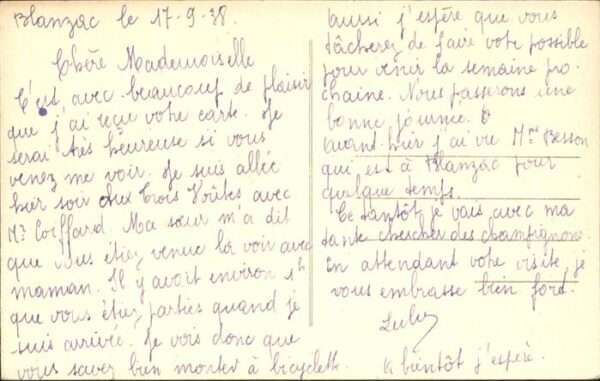 Blanzac le 17-9-38.
Chère Mademoiselle
C'est avec beaucoup de plaisir
que j'ai reçue votre carte. Je
serai très heureuse si vous
venez me voir. Je suis allée
hier soir aux Trois Voûtes avec
Mr Coiffard. Ma sœur m'a dit
que vous étiez venue la voir avec
maman. Il y avait environ 1h
que vous étiez parties quand je
suis arrivée. Je vois donc que
vous savez bien monter à bicyclette.
aussi j'espère que vous
tâcherez de faire votre possible
pour venir la semaine pro
chaine. Nous passerons une
bonne journée.
avant hier j'ai vu Mme Besson
qui est à Blanzac pour
quelque temps.
Ce tantôt je vais avec ma
tante chercher des champignons.
En attendant votre visite, je
vous embrasse bien fort.
Lulu
A bientôt j'espère.